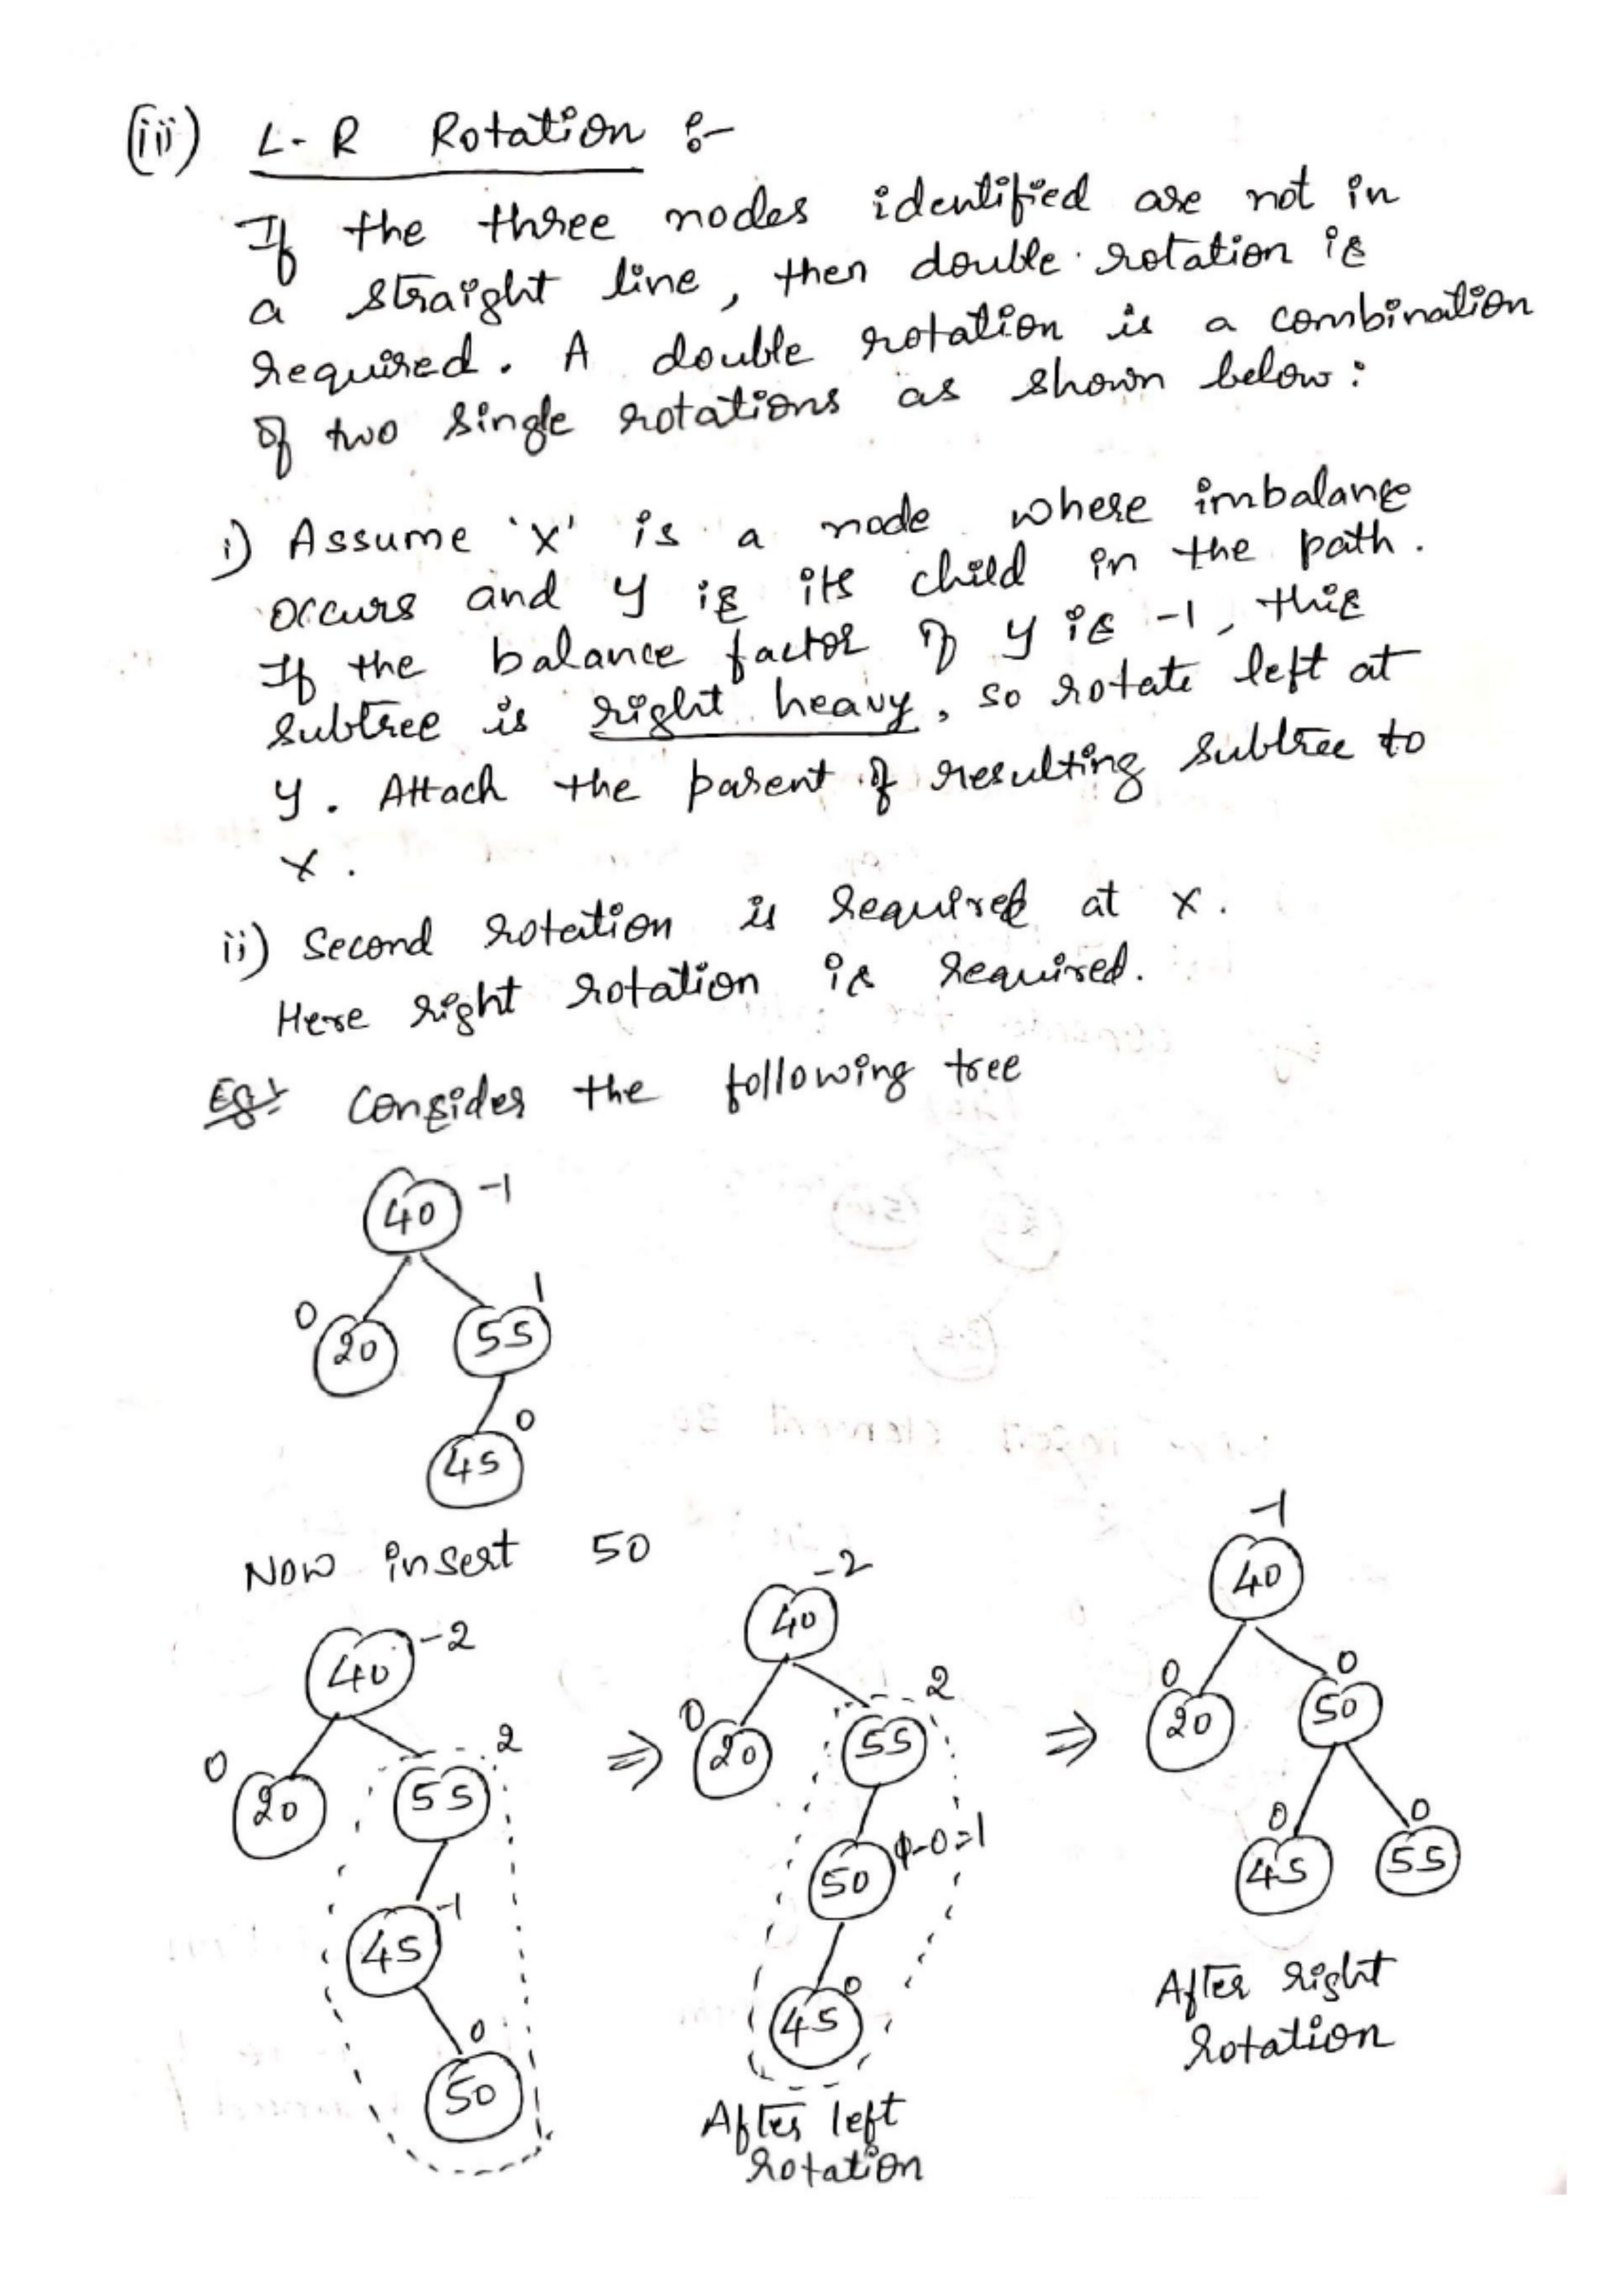 (iii) L-R Rotation :-
If the three nodes identified are not in
a straight line, then double rotation is
required. A double rotation is a combination
of two single rotations as shown below:
i) Assume 'x' is a node where imbalance
occurs and y is its child in the path.
If the balance factor of y is -1, this
subtree is right heavy, so rotate left at
y. Attach the parent of resulting subtree to
x.
ii) Second rotation is required at x.
Here right rotation is required.
Eg:- Consider the following tree
40 -1
0 20 55 1
45 0
Now insert 50
40 -2
0 20 55 2
45 -1
50 0
⇒
40 -2
0 20 55 2
50 1-0=1
45 0
After left
rotation
⇒
-1
40
0 20 50 0
0 45 55 0
After right
rotation